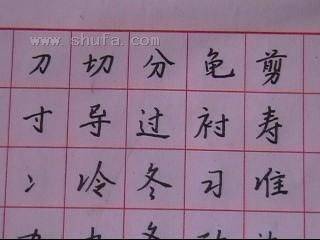 www.shufa.com
刀切分龟剪
寸导过衬寿
冫冷冬习准